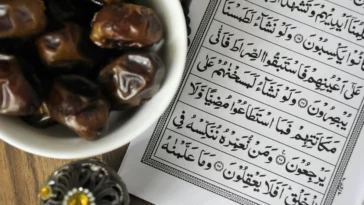 أَيْدِيهِمْ وَتَشْهَدُ
كَانُوا يَكْسِبُونَ ۝ وَلَوْ نَشَاءُ لَطَمَسْنَا
عَلَىٰ أَعْيُنِهِمْ فَاسْتَبَقُوا الصِّرَاطَ فَأَنَّىٰ
يُبْصِرُونَ ۝ وَلَوْ نَشَاءُ لَمَسَخْنَاهُمْ عَلَىٰ
مَكَانَتِهِمْ فَمَا اسْتَطَاعُوا مُضِيًّا وَلَا
يَرْجِعُونَ ۝ وَمَنْ نُعَمِّرْهُ نُنَكِّسْهُ فِي
الْخَلْقِ أَفَلَا يَعْقِلُونَ ۝ وَمَا عَلَّمْنَاهُ